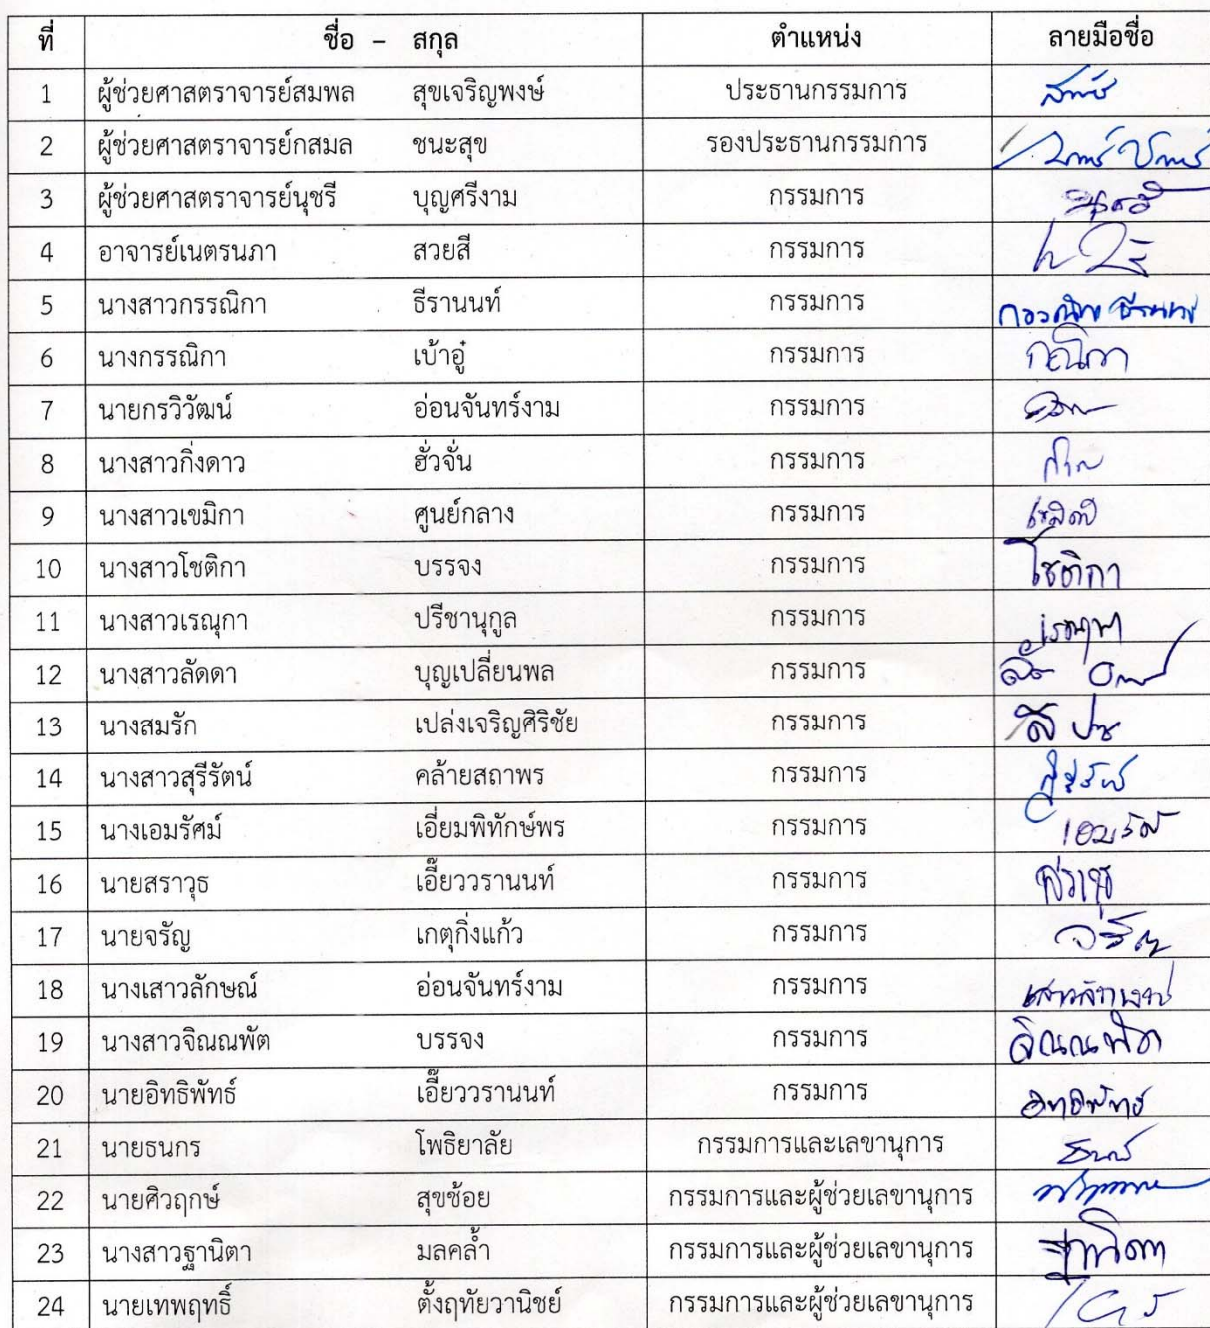 ที่ ชื่อ - สกุล ตำแหน่ง ลายมือชื่อ
1 ผู้ช่วยศาสตราจารย์สมพล สุขเจริญพงษ์ ประธานกรรมการ
2 ผู้ช่วยศาสตราจารย์กสมล ชนะสุข รองประธานกรรมการ
3 ผู้ช่วยศาสตราจารย์นุชรี บุญศรีงาม กรรมการ
4 อาจารย์เนตรนภา สวยสี กรรมการ
5 นางสาวกรรณิกา ธีรานนท์ กรรมการ
6 นางกรรณิกา เบ้าอู๋ กรรมการ
7 นายกรวิวัฒน์ อ่อนจันทร์งาม กรรมการ
8 นางสาวกิ่งดาว ฮั่วจั่น กรรมการ
9 นางสาวเขมิกา ศูนย์กลาง กรรมการ
10 นางสาวโชติกา บรรจง กรรมการ โชติกา
11 นางสาวเรณุกา ปรีชานุกูล กรรมการ
12 นางสาวลัดดา บุญเปลี่ยนพล กรรมการ
13 นางสมรัก เปล่งเจริญศิริชัย กรรมการ
14 นางสาวสุรีรัตน์ คล้ายสถาพร กรรมการ
15 นางเอมรัศม์ เอี่ยมพิทักษ์พร กรรมการ
16 นายสราวุธ เอี๊ยววรานนท์ กรรมการ
17 นายจรัญ เกตุกิ่งแก้ว กรรมการ
18 นางเสาวลักษณ์ อ่อนจันทร์งาม กรรมการ
19 นางสาวจิณณพัต บรรจง กรรมการ จิณณพัต
20 นายอิทธิพัทธ์ เอี๊ยววรานนท์ กรรมการ
21 นายธนกร โพธิยาลัย กรรมการและเลขานุการ
22 นายศิวฤกษ์ สุขช้อย กรรมการและผู้ช่วยเลขานุการ
23 นางสาวฐานิตา มลคล้ำ กรรมการและผู้ช่วยเลขานุการ ฐานิตา
24 นายเทพฤทธิ์ ตั้งฤทัยวานิชย์ กรรมการและผู้ช่วยเลขานุการ